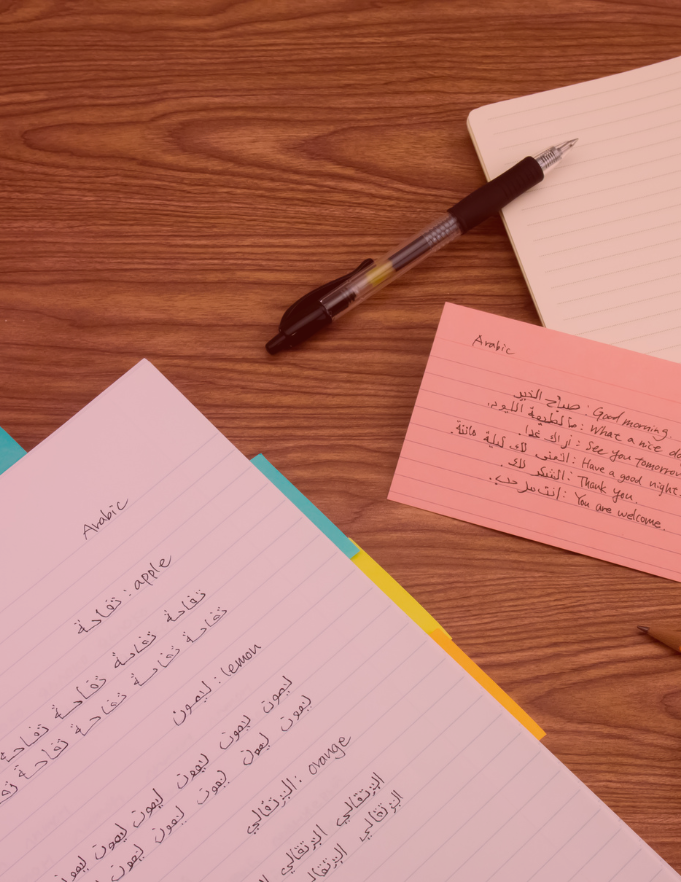 Arabic
صباح الخير : Good morning.
ما لطيفة اليوم. : What a nice
أراك غدا. : See you tomorrow
أتمنى لك ليلة هانئة. : Have a good night.
الشكر لك. : Thank you.
أنت مرحب. : You are welcome.
Arabic
تفاحة : apple
تفاحة تفاحة تفاحة تفاحة
تفاحة تفاحة تفاحة تفاحة
ليمون : lemon
ليمون ليمون ليمون ليمون ليمون
ليمون ليمون ليمون ليمون ليمون
البرتقالي : orange
البرتقالي البرتقالي
البرتقالي